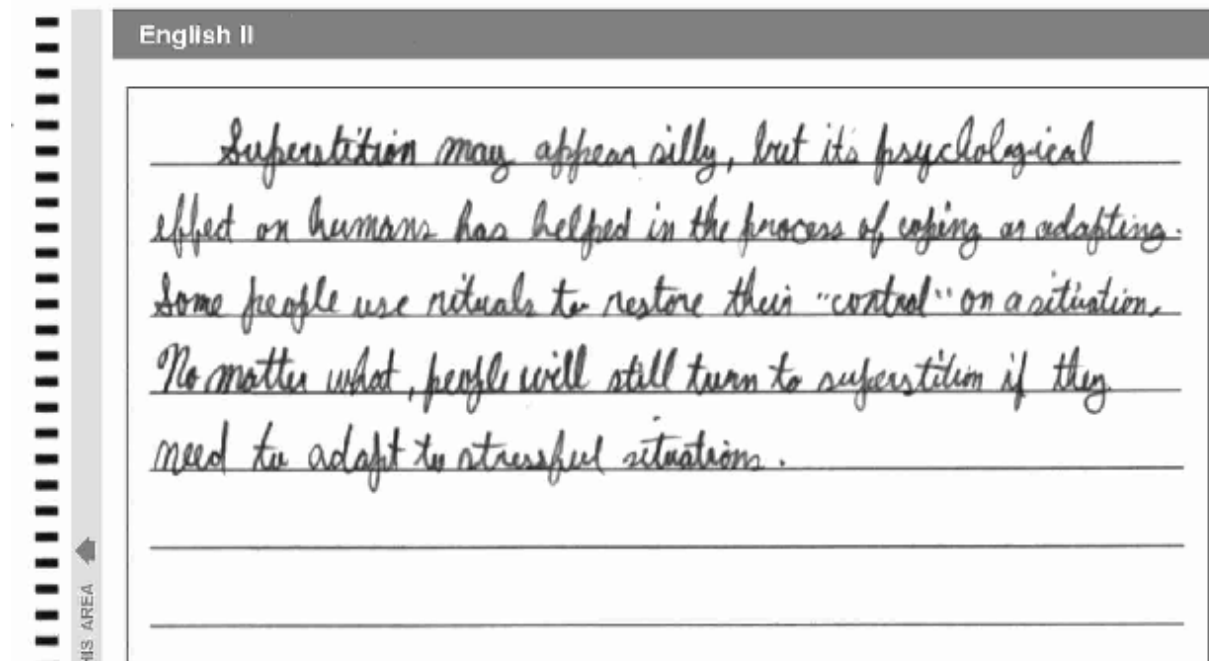 English II
Superstition may appear silly, but it's psychological
effect on humans has helped in the process of coping or adapting.
Some people use rituals to restore their "control" on a situation.
No matter what, people will still turn to superstition if they
need to adapt to stressful situations.
HIS AREA